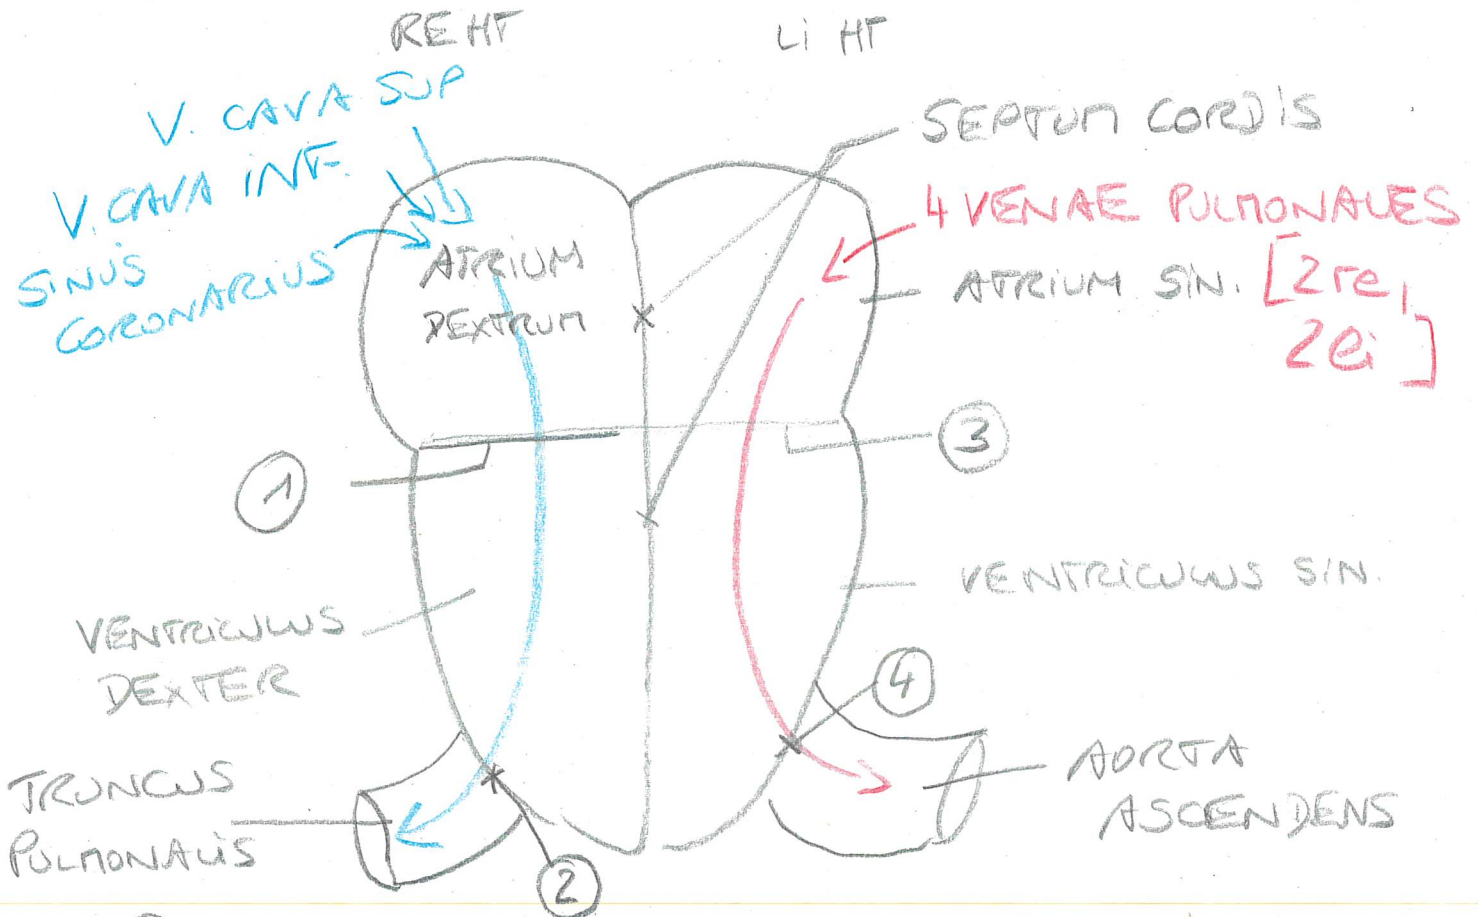 RE HT
LI HT
V. CAVA SUP
V. CAVA INF.
SINUS
CORONARIUS
ATRIUM
DEXTRUM
SEPTUM CORDIS
4 VENAE PULMONALES
ATRIUM SIN. [2re,
2li]
1
3
VENTRICULUS
DEXTER
VENTRICULUS SIN.
4
TRUNCUS
PULMONALIS
AORTA
ASCENDENS
2